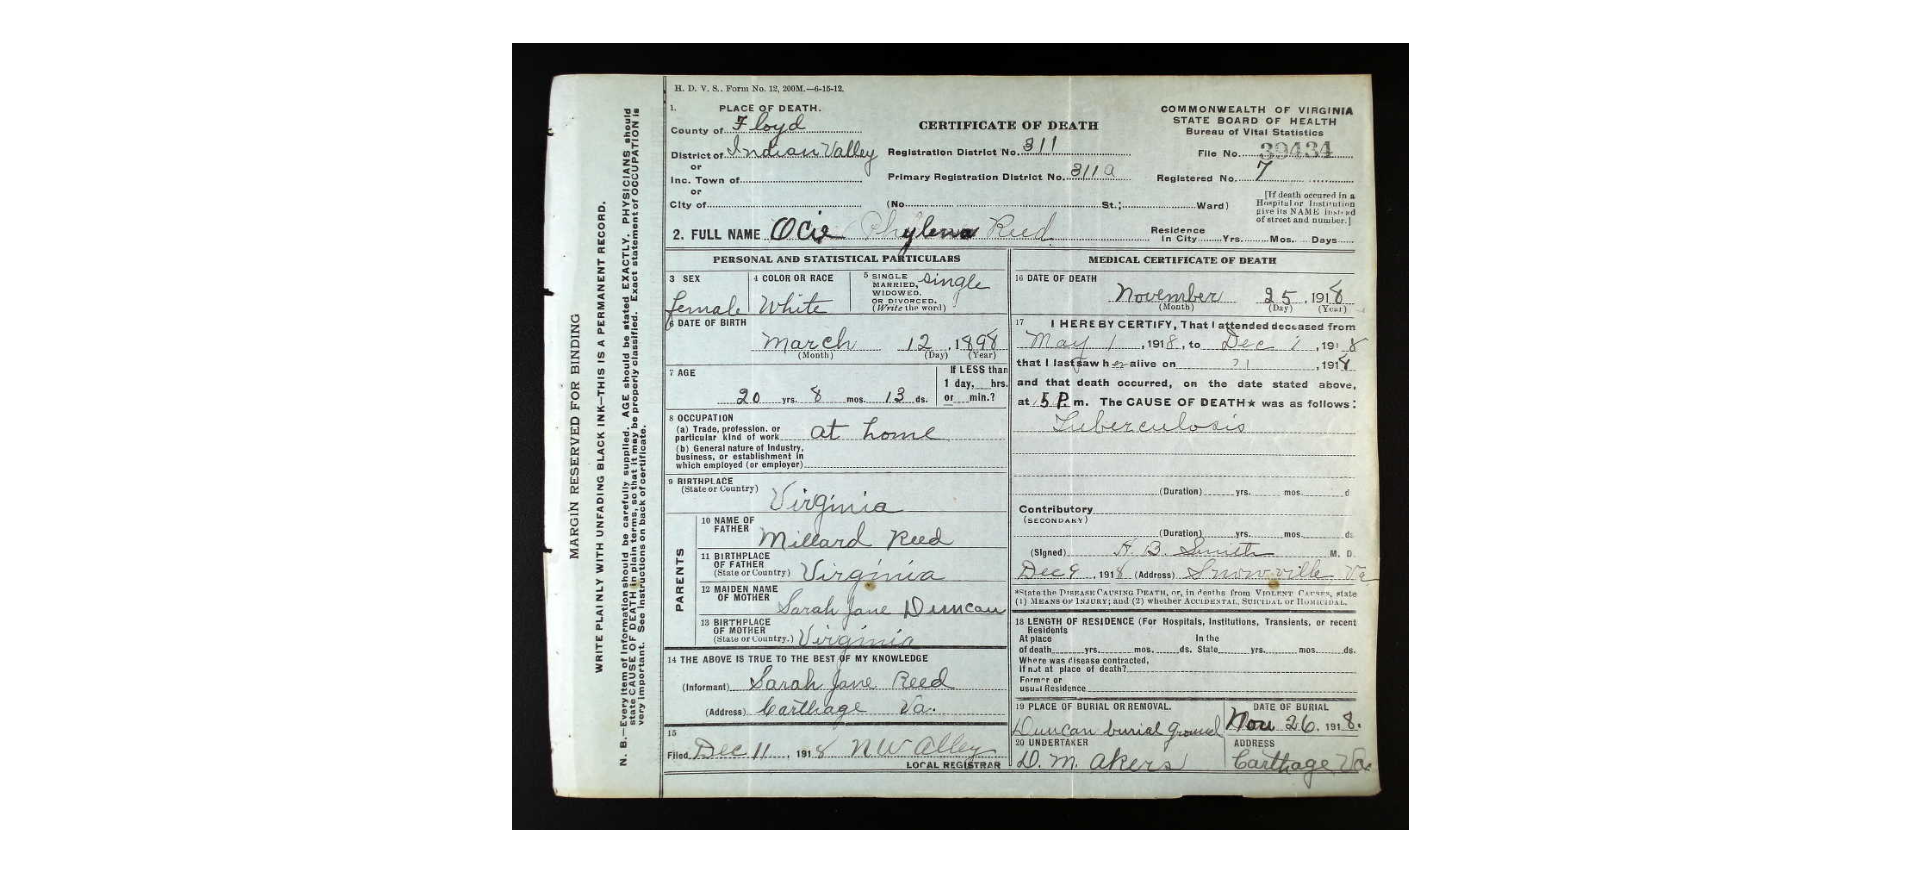 H. D. V. S.. Form No. 12, 200M.—6-15-12.
1. PLACE OF DEATH.
County of Floyd
District of Indian Valley
or
Inc. Town of
or
City of
CERTIFICATE OF DEATH
Registration District No. 311
Primary Registration District No. 311a
(No. St.; Ward)
COMMONWEALTH OF VIRGINIA
STATE BOARD OF HEALTH
Bureau of Vital Statistics
File No. 39434
Registered No. 7
[If death occured in a
Hospital or Institution
give its NAME instead
of street and number.]
2. FULL NAME Ocie Phylena Reed
Residence
In City Yrs. Mos. Days
PERSONAL AND STATISTICAL PARTICULARS
3 SEX
Female
4 COLOR OR RACE
White
5 SINGLE
MARRIED,
WIDOWED.
OR DIVORCED.
(Write the word)
Single
6 DATE OF BIRTH
March 12, 1898
(Month) (Day) (Year)
7 AGE
20 yrs. 8 mos. 13 ds.
If LESS than
1 day, hrs.
or min.?
8 OCCUPATION
(a) Trade, profession. or
particular kind of work at home
(b) General nature of Industry,
business, or establishment in
which employed (or employer)
9 BIRTHPLACE
(State or Country)
Virginia
PARENTS
10 NAME OF
FATHER
Millard Reed
11 BIRTHPLACE
OF FATHER
(State or Country) Virginia
12 MAIDEN NAME
OF MOTHER
Sarah Jane Duncan
13 BIRTHPLACE
OF MOTHER
(State or Country.) Virginia
14 THE ABOVE IS TRUE TO THE BEST OF MY KNOWLEDGE
(Informant) Sarah Jane Reed
(Address) Carthage Va.
15
Filed Dec 11, 1918 N W Alley
LOCAL REGISTRAR
MEDICAL CERTIFICATE OF DEATH
16 DATE OF DEATH
November 25, 1918
(Month) (Day) (Year)
17 I HEREBY CERTIFY, That I attended deceased from
May 1, 1918, to Dec 1, 1918
that I last saw her alive on , 191
and that death occurred, on the date stated above,
at 5 P. m. The CAUSE OF DEATH★ was as follows:
Tuberculosis
(Duration) yrs. mos. d
Contributory
(SECONDARY)
(Duration) yrs. mos. ds.
(Signed) H. B. Smith M. D.
Dec 9, 1918 (Address) Snowville Va
*State the DISEASE CAUSING DEATH, or, in deaths from VIOLENT CAUSES, state
(1) MEANS OF INJURY; and (2) whether ACCIDENTAL, SUICIDAL or HOMICIDAL.
18 LENGTH OF RESIDENCE (For Hospitals, Institutions, Transients, or recent
Residents
At place In the
of death yrs. mos. ds. State yrs. mos. ds.
Where was disease contracted,
if not at place of death?
Former or
usual Residence
19 PLACE OF BURIAL OR REMOVAL.
Duncan burial ground
DATE OF BURIAL
Nov 26, 1918.
20 UNDERTAKER
D. M. Akers
ADDRESS
Carthage Va.
MARGIN RESERVED FOR BINDING
WRITE PLAINLY WITH UNFADING BLACK INK—THIS IS A PERMANENT RECORD.
N. B.—Every item of information should be carefully supplied. AGE should be stated EXACTLY. PHYSICIANS should
state CAUSE OF DEATH in plain terms, so that it may be properly classified. Exact statement of OCCUPATION is
very important. See instructions on back of certificate.